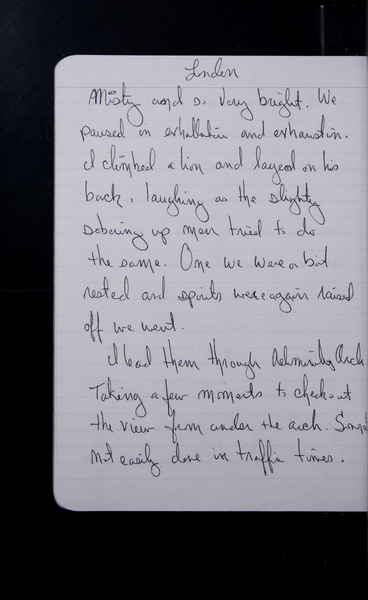 London
Misty and so very bright. We
paused in exhallatin and exhaustin.
I climbed a lion and layed on his
back, laughing as the slightly
sobering up men tried to do
the same. One we were a bit
rested and spirits were again raised
off we went.
I lead them through Admiralty Arch
Taking a few moments to check out
the view from under the arch.
not easily done in traffic times.